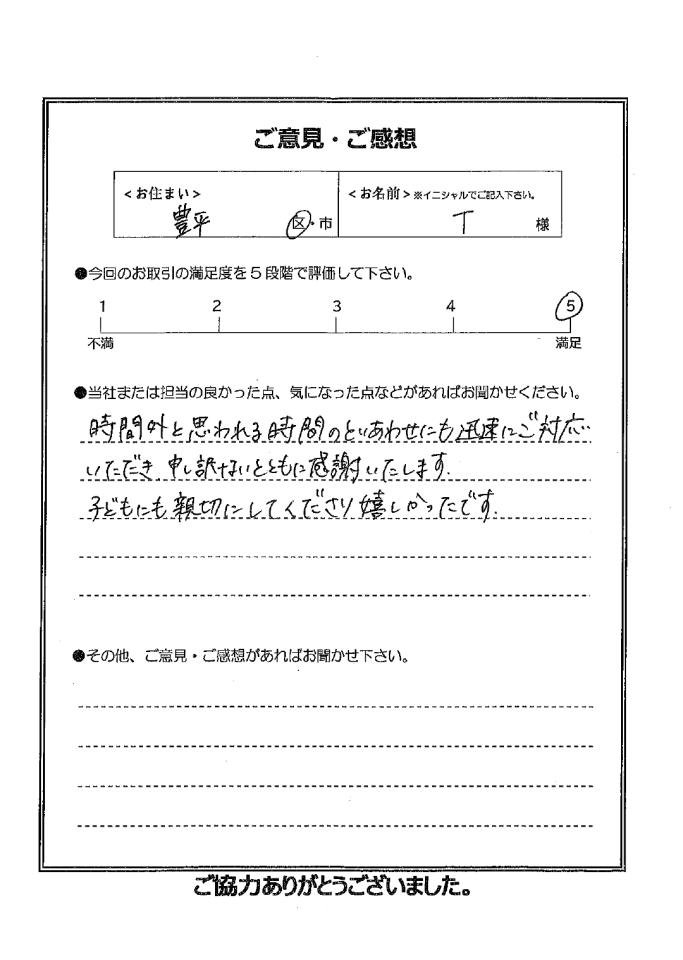 ご意見・ご感想
<お住まい>
豊平 区・市
<お名前>※イニシャルでご記入下さい。
T 様
●今回のお取引の満足度を5段階で評価して下さい。
1 2 3 4 5
不満 満足
●当社または担当の良かった点、気になった点などがあればお聞かせください。
時間外と思われる時間のといあわせにも迅速にご対応
いただき、申し訳ないとともに感謝いたします.
子どもにも親切にしてくださり嬉しかったです.
●その他、ご意見・ご感想があればお聞かせ下さい。
ご協力ありがとうございました。